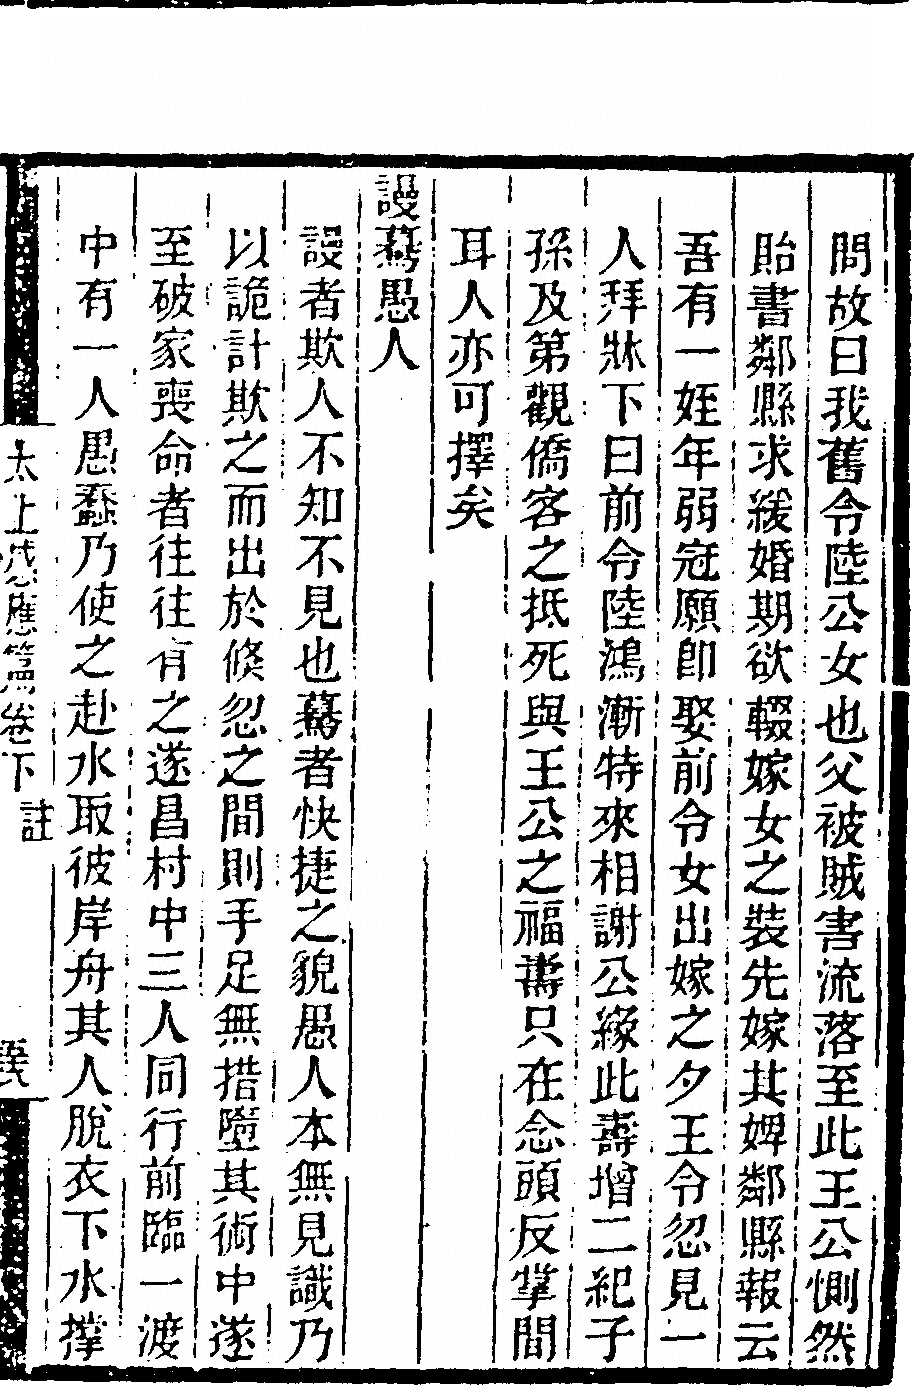 問故曰我舊令陸公女也父被賊害流落至此王公惻然
貽書鄰縣求緩婚期欲輟嫁女之裝先嫁其婢鄰縣報云
吾有一姪年弱冠願卽娶前令女出嫁之夕王令忽見一
人拜牀下曰前令陸鴻漸特來相謝公緣此壽增二紀子
孫及第觀僑客之抵死與王公之福壽只在念頭反掌間
耳人亦可擇矣
謾驀愚人
謾者欺人不知不見也驀者快捷之貌愚人本無見識乃
以詭計欺之而出於倐忽之間則手足無措墮其術中遂
至破家喪命者往往有之遂昌村中三人同行前臨一渡
中有一人愚蠢乃使之赴水取彼岸舟其人脫衣下水撑
太上感應篇卷下 註